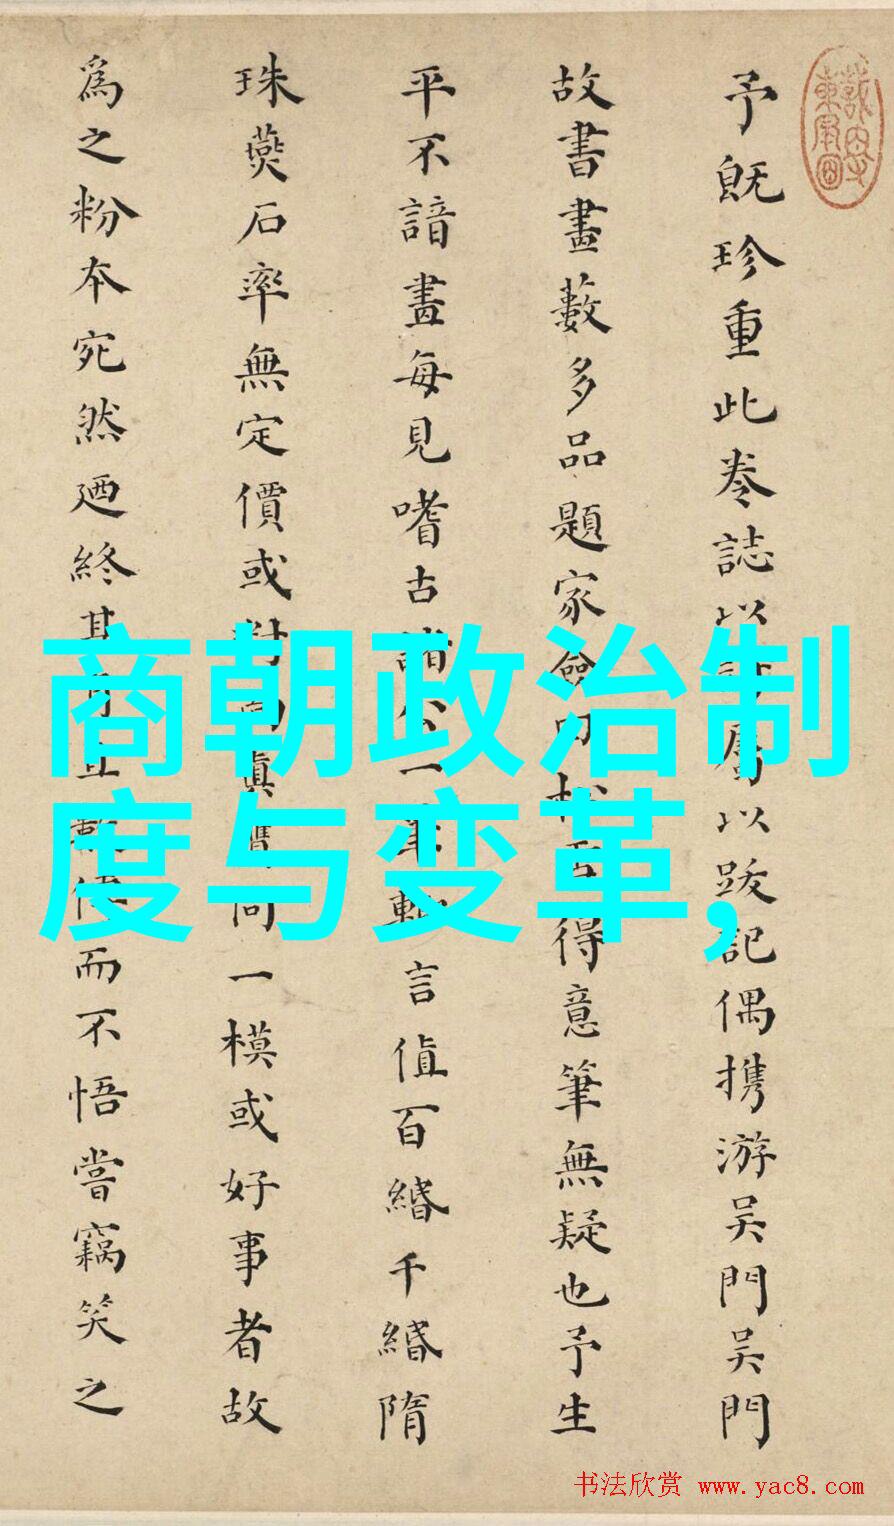 予旣珍重此卷誌以屬以跋記偶携游吴門吴門
故書畫藪多品題家僉曰松雪得意筆無疑也予生
平不諳畫每見嗜古諸公一筆輒言值百緡千緡隋
珠燕石率無定價或對面真贋同一模或好事者故
為之粉本宛然廼終其而不悟嘗竊笑之
商朝政治制
度与变革,
书法欣赏 www.yac8.com